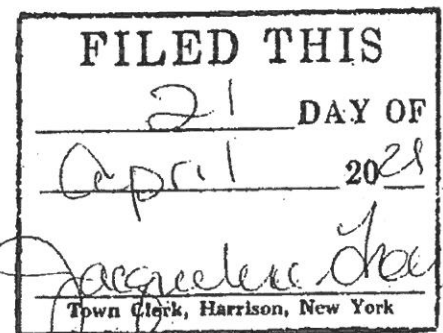 FILED THIS
21 DAY OF
April 20
Jacqueline
Town Clerk, Harrison, New York